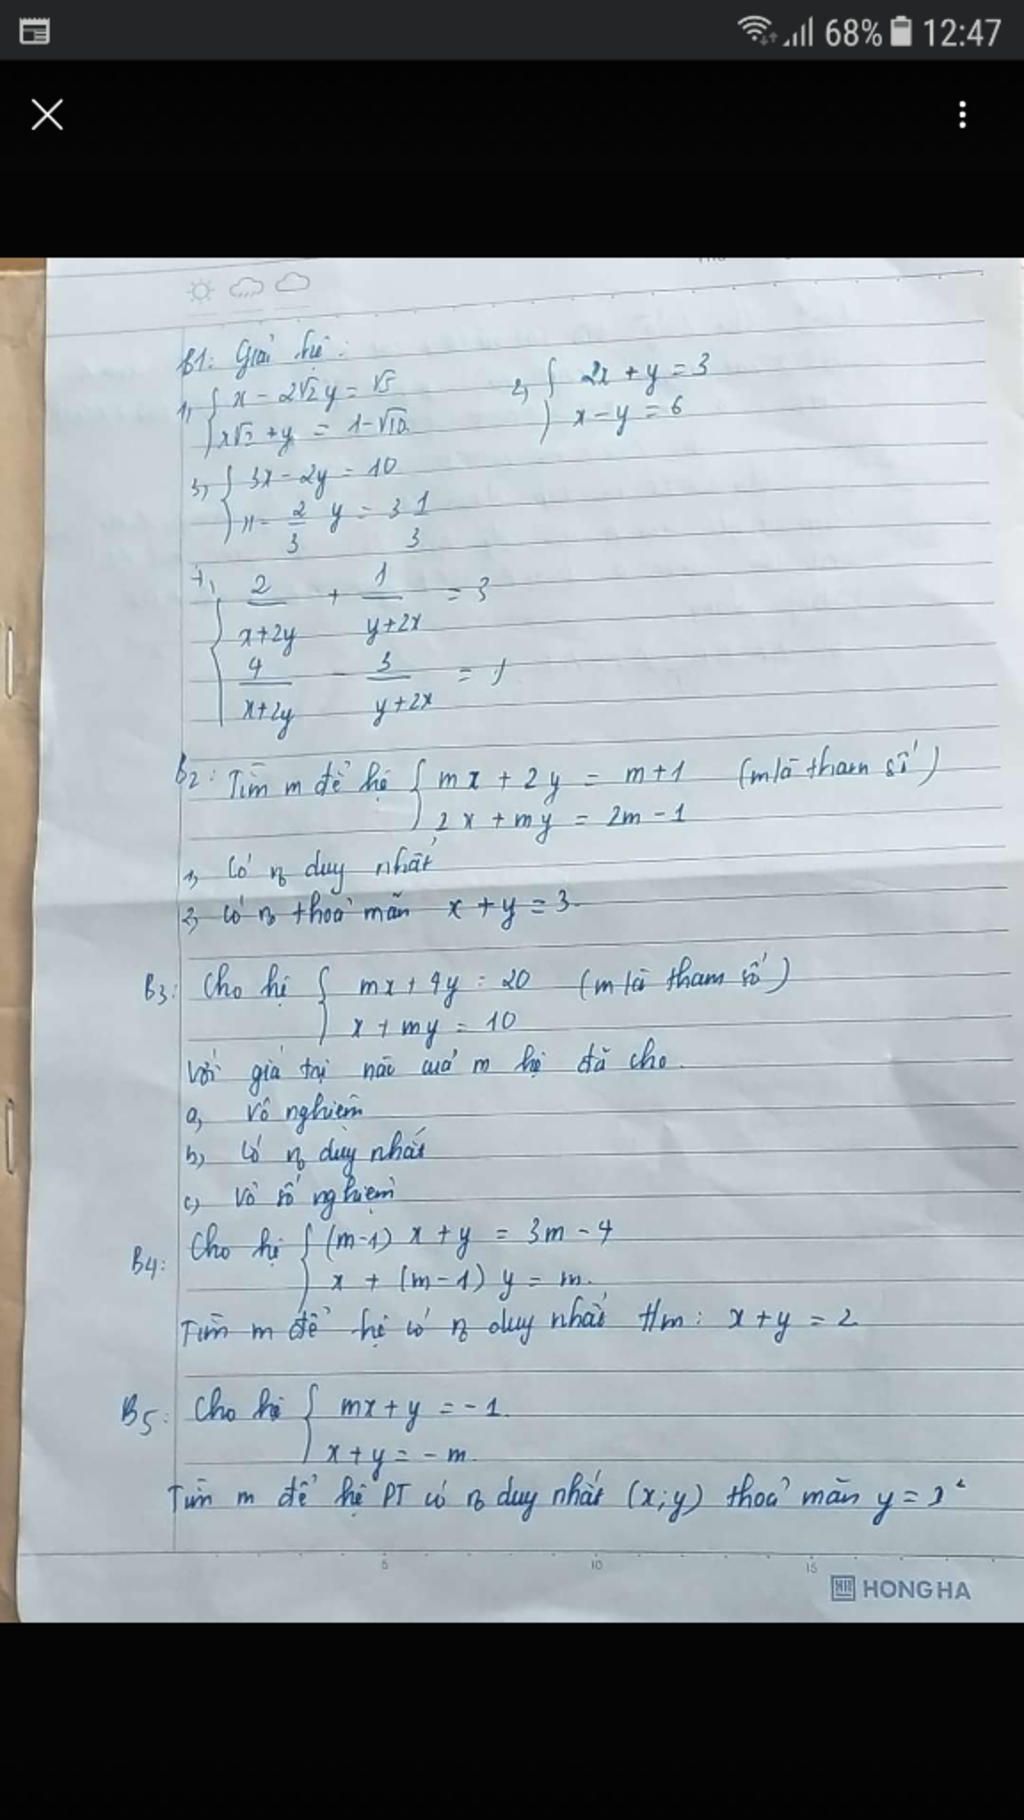 68% 12:47
B1: Giải hệ:
1, { x - 2√2 y = √5
x√2 + y = 1 - √10
2, { 2x + y = 3
x - y = 6
3, { 3x - 2y = 10
x - 2/3 y = 3 1/3
4, { 2/(x+2y) + 1/(y+2x) = 3
4/(x+2y) - 3/(y+2x) = 1
B2: Tìm m để hệ { mx + 2y = m+1 (m là tham số)
2x + my = 2m - 1
1, Có n₀ duy nhất
2, Có n₀ thoả mãn x + y = 3.
B3: Cho hệ { mx + 4y = 20 (m là tham số)
x + my = 10
Với giá trị nào của m hệ đã cho.
a, Vô nghiệm
b, Có n₀ duy nhất
c, Vô số nghiệm
B4: Cho hệ { (m-1) x + y = 3m - 4
x + (m-1) y = m.
Tìm m để hệ có n₀ duy nhất t/m: x + y = 2
B5: Cho hệ { mx + y = -1.
x + y = -m.
Tìm m để hệ PT có n₀ duy nhất (x;y) thoả mãn y = x²
5 10 15
HONG HA